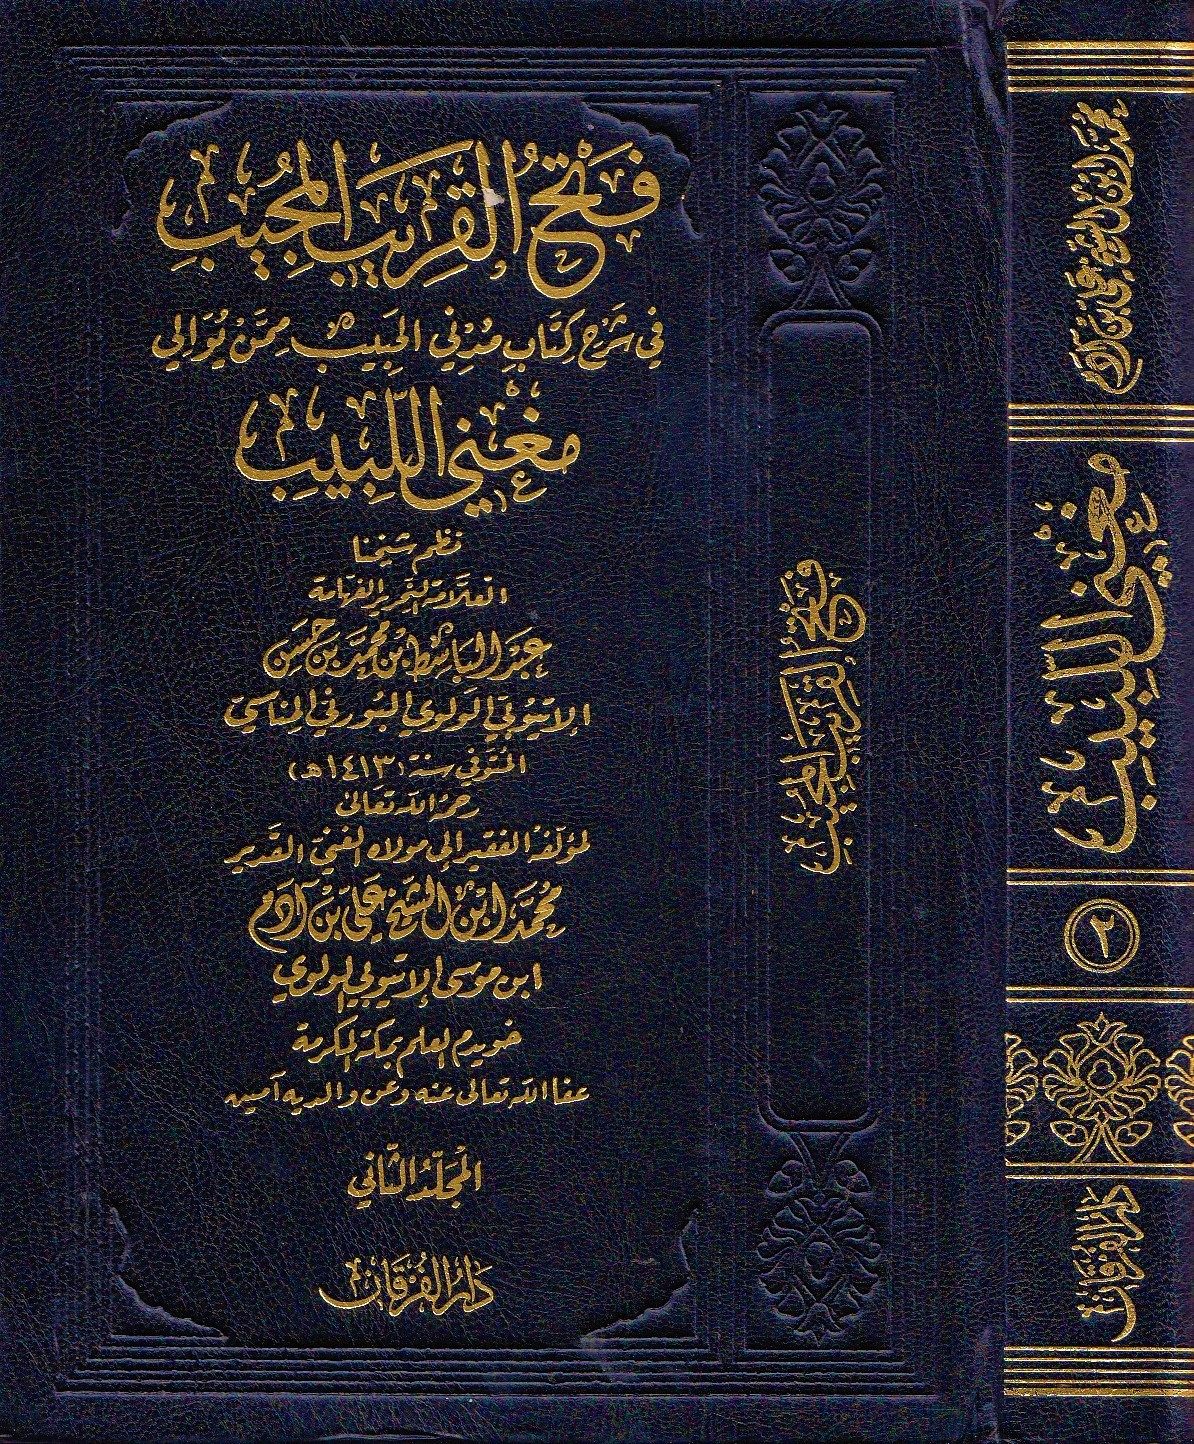 فَتْحُ القَرِيبِ المُجِيبِ
في شَرْحِ كِتَابِ مُدْنِي الحَبِيبِ مِمَّنْ يُوَالِي
مُغْنِي اللَّبِيبِ
نظم شيخنا
العلَّامة النحرير الفهامة
عَبْد البَاسِط بْن محمَّد بْن حَسَن
الإتيوبي الولوي البورني المناسي
المتوفى سنة (١٤١٣هـ)
رحمه الله تعالى
لمؤلفه الفقير إلى مولاه الغني القدير
مُحَمَّد ابْن الشَّيْخ عَلِي بْن آدَم
ابن موسى الإتيوبي الولوي
خويدم العلم بمكة المكرمة
عفا الله تعالى عنه وعن والديه آمين
المُجَلَّدُ الثَّانِي
دَارُ الفُرْقَان
فتح القريب المجيب
محمد ابن الشيخ علي بن آدم
مغني اللبيب
٢
دار الفرقان